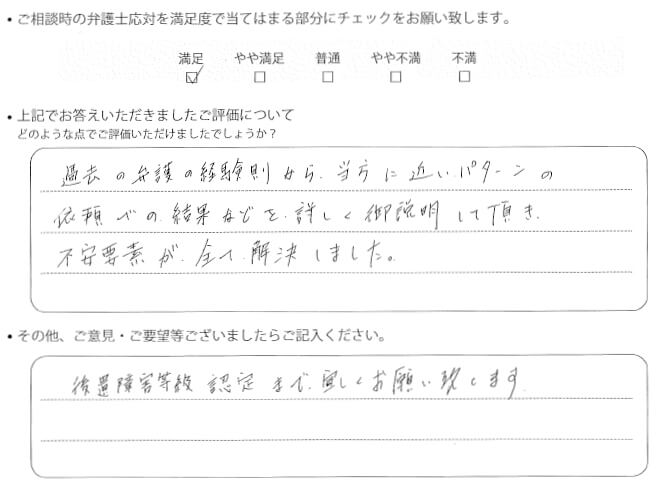 • ご相談時の弁護士応対を満足度で当てはまる部分にチェックをお願い致します。
満足 やや満足 普通 やや不満 不満
☑ □ □ □ □
• 上記でお答えいただきましたご評価について
どのような点でご評価いただけましたでしょうか？
過去の弁護の経験則から、当方に近いパターンの
依頼での結果などを、詳しく御説明して頂き、
不安要素が、全て解決しました。
• その他、ご意見・ご要望等ございましたらご記入ください。
後遺障害等級認定まで、宜しくお願い致します。